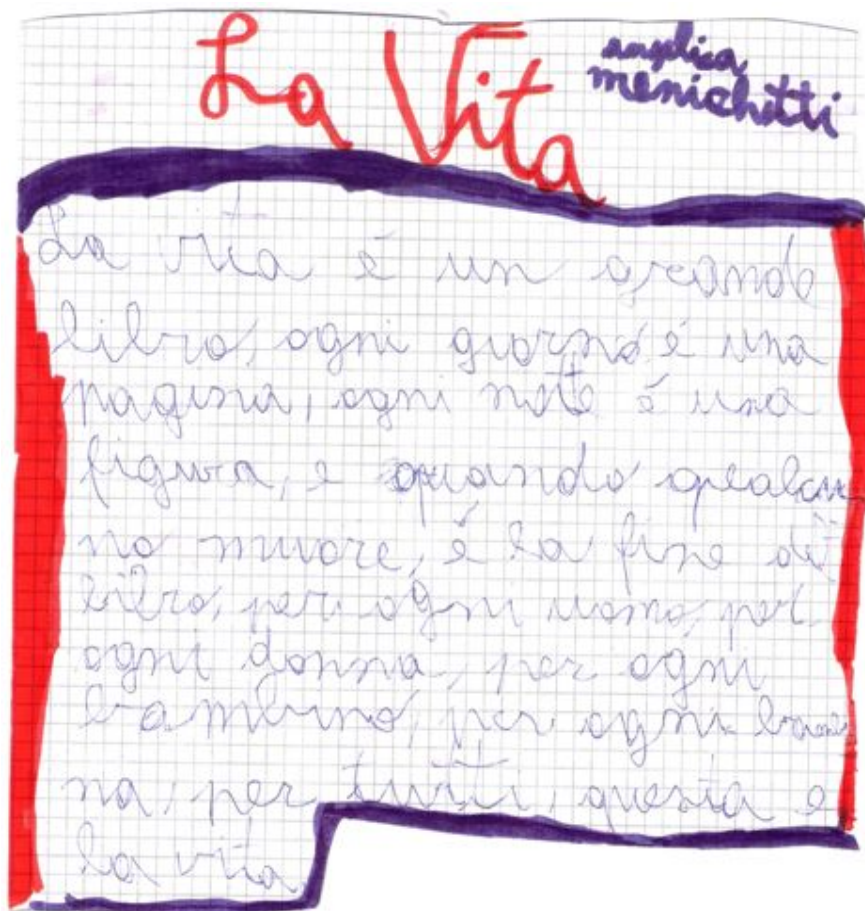 La Vita
angelica
menichetti
La vita é un grande
libro, ogni giorno é una
pagina, ogni notte é una
figura, e quando qualcu
no muore, é la fine del
libro, per ogni uomo, per
ogni donna, per ogni
bambino, per ogni bambi
na, per tutti, questa e
la vita